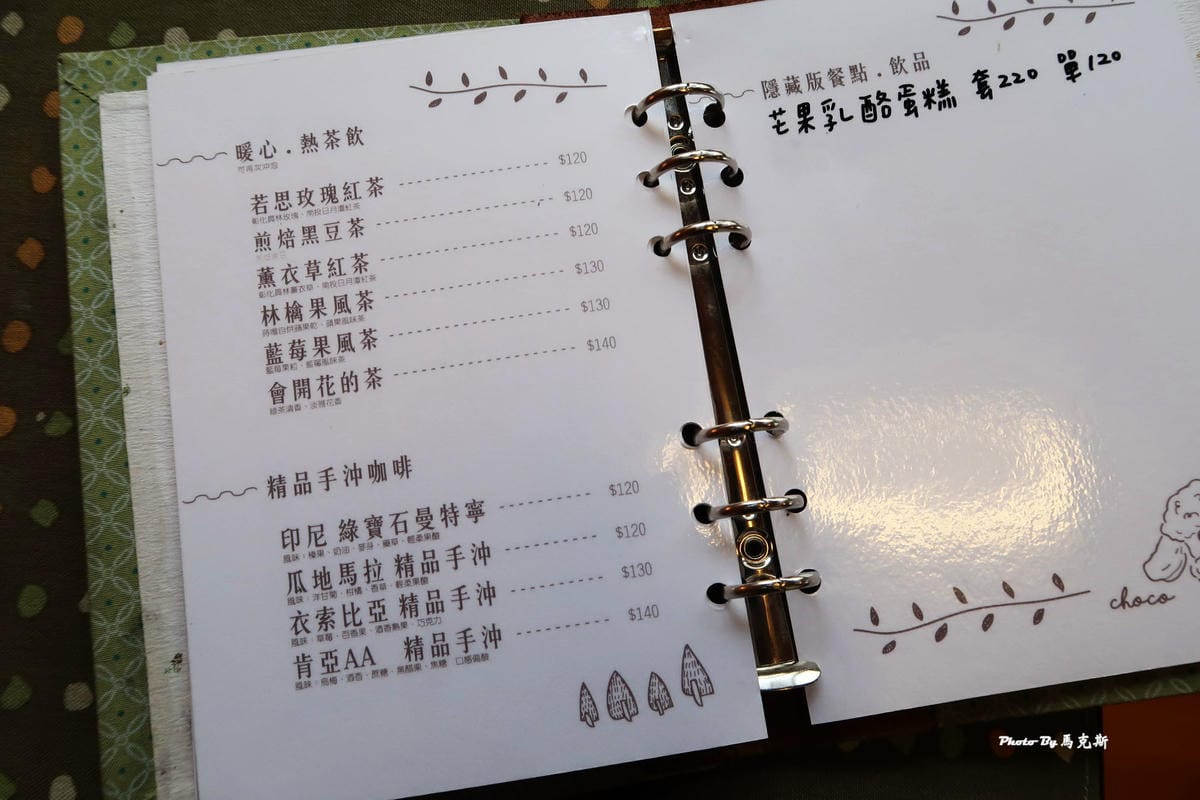 暖心．熱茶飲
可再次沖泡
若思玫瑰紅茶 $120
彰化員林玫瑰、南投日月潭紅茶
煎焙黑豆茶 $120
薰衣草紅茶 $120
彰化員林薰衣草、南投日月潭紅茶
林檎果風茶 $130
蒔嚐自烘蘋果乾、蘋果風味茶
藍莓果風茶 $130
藍莓果粒、藍莓風味茶
會開花的茶 $140
綠茶清香、淡雅花香
精品手沖咖啡
印尼 綠寶石曼特寧 $120
風味：榛果、奶油、麥芽、藥草、輕柔果酸
瓜地馬拉 精品手沖 $120
風味：洋甘菊、柑橘、香草、輕柔果酸
衣索比亞 精品手沖 $130
風味：草莓、百香果、酒香熟果、巧克力
肯亞AA 精品手沖 $140
風味：烏梅、酒香、蔗糖、黑醋果、焦糖 口感偏酸
隱藏版餐點．飲品
芒果乳酪蛋糕 套220 單120
choco
Photo By 馬克斯